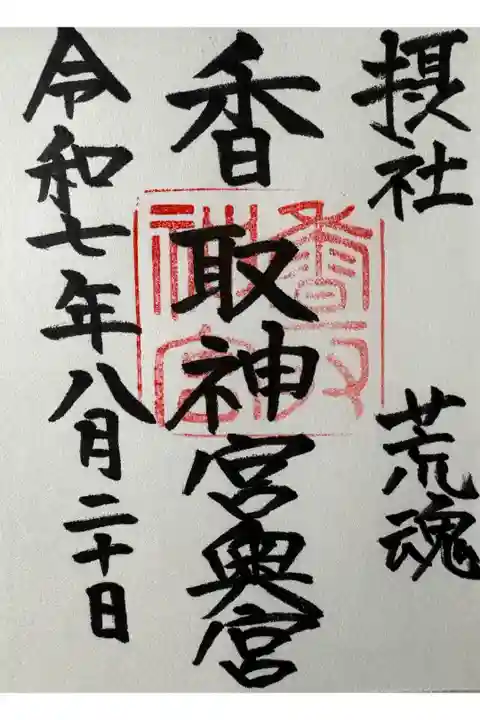 摂社 荒魂
香取神宮奥宮
香取
神宮
令和七年八月二十日